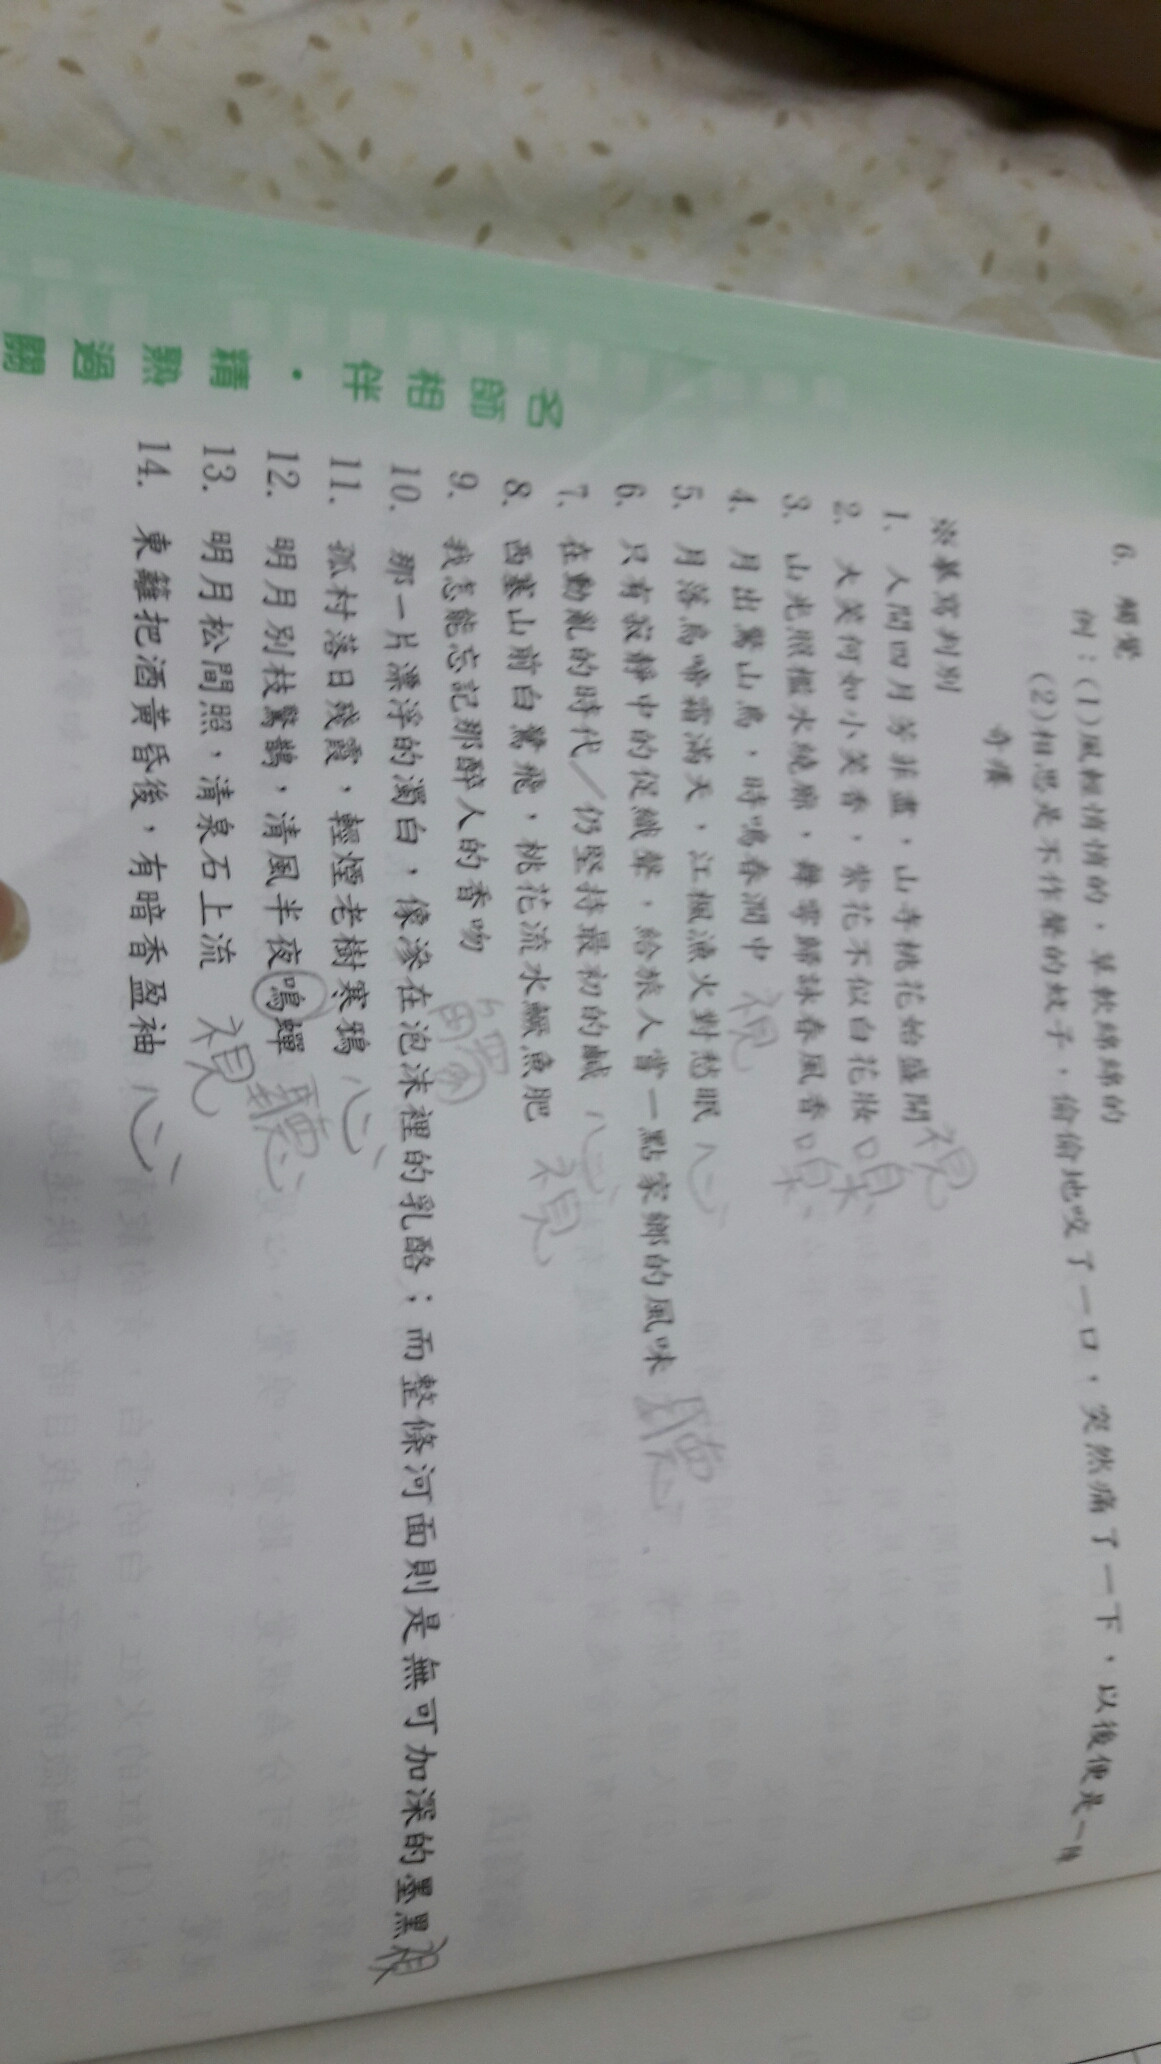 6. 觸覺
例：(1)風輕悄悄的，草軟綿綿的
(2)相思是不作聲的蚊子，偷偷地咬了一口，突然痛了一下，以後便是一陣
奇癢
※摹寫判別
1. 人間四月芳菲盡，山寺桃花始盛開 視
2. 大笑何如小笑香，紫花不似白花妝 嗅
3. 山光照檻水繞廊，舞雩歸詠春風香 嗅
4. 月出驚山鳥，時鳴春澗中 視
5. 月落烏啼霜滿天，江楓漁火對愁眠 心
6. 只有寂靜中的促織聲，給旅人嘗一點家鄉的風味 聽
7. 在動亂的時代／仍堅持最初的鹹 心
8. 西塞山前白鷺飛，桃花流水鱖魚肥 視
9. 我怎能忘記那醉人的香吻 觸
10. 那一片漂浮的濁白，像滲在泡沫裡的乳酪；而整條河面則是無可加深的墨黑 視
11. 孤村落日殘霞，輕煙老樹寒鴉 心
12. 明月別枝驚鵲，清風半夜鳴蟬 聽
13. 明月松間照，清泉石上流 視
14. 東籬把酒黃昏後，有暗香盈袖 心
名師相伴・精熟過關